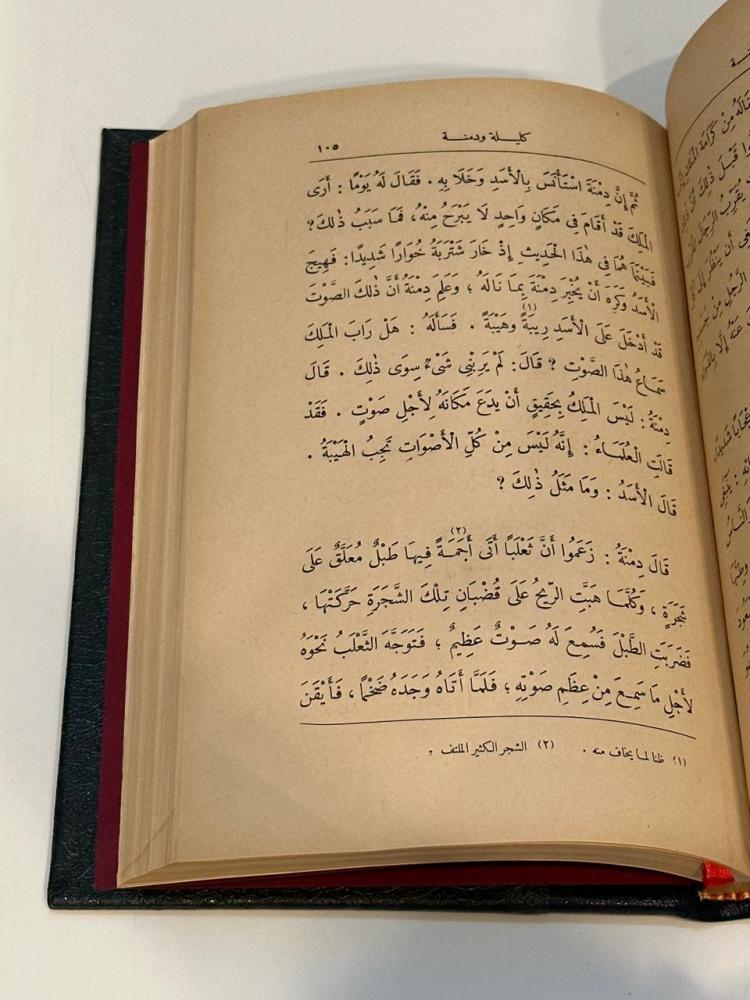 كليلة ودمنة ١٠٥
ثُمَّ إِنَّ دِمْنَةَ اسْتَأْنَسَ بِالْأَسَدِ وَخَلَا بِهِ . فَقَالَ لَهُ يَوْمًا : أَرَى
الْمَلِكَ قَدْ أَقَامَ فِي مَكَانٍ وَاحِدٍ لَا يَبْرَحُ مِنْهُ، فَمَا سَبَبُ ذٰلِكَ؟
فَبَيْنَمَا هُمَا فِي هٰذَا الْحَدِيثِ إِذْ خَارَ شَتْرَبَةُ خُوَارًا شَدِيدًا : فَهَيَّجَ
الْأَسَدُ وَكَرِهَ أَنْ يُخْبِرَ دِمْنَةَ بِمَا نَالَهُ ؛ وَعَلِمَ دِمْنَةُ أَنَّ ذٰلِكَ الصَّوْتَ
قَدْ أَدْخَلَ عَلَى الْأَسَدِ رِيبَةً (١) وَهَيْبَةً . فَسَأَلَهُ : هَلْ رَابَ الْمَلِكَ
سَمَاعُ هٰذَا الصَّوْتِ ؟ قَالَ : لَمْ يَرِبْنِي شَيْءٌ سِوَى ذٰلِكَ . قَالَ
دِمْنَةُ : لَيْسَ الْمَلِكُ بِحَقِيقٍ أَنْ يَدَعَ مَكَانَهُ لِأَجْلِ صَوْتٍ . فَقَدْ
قَالَتِ الْعُلَمَاءُ : إِنَّهُ لَيْسَ مِنْ كُلِّ الْأَصْوَاتِ تَجِبُ الْهَيْبَةُ .
قَالَ الْأَسَدُ : وَمَا مَثَلُ ذٰلِكَ ؟
قَالَ دِمْنَةُ : زَعَمُوا أَنَّ ثَعْلَبًا أَتَى أَجَمَةً (٢) فِيهَا طَبْلٌ مُعَلَّقٌ عَلَى
شَجَرَةٍ ، وَكُلَّمَا هَبَّتِ الرِّيحُ عَلَى قُضْبَانِ تِلْكَ الشَّجَرَةِ حَرَّكَتْهَا ،
فَضَرَبَتِ الطَّبْلَ فَسُمِعَ لَهُ صَوْتٌ عَظِيمٌ ؛ فَتَوَجَّهَ الثَّعْلَبُ نَحْوَهُ
لِأَجْلِ مَا سَمِعَ مِنْ عِظَمِ صَوْتِهِ ؛ فَلَمَّا أَتَاهُ وَجَدَهُ ضَخْمًا ، فَأَيْقَنَ
(١) ظنا لما يخاف منه . (٢) الشجر الكثير الملتف .